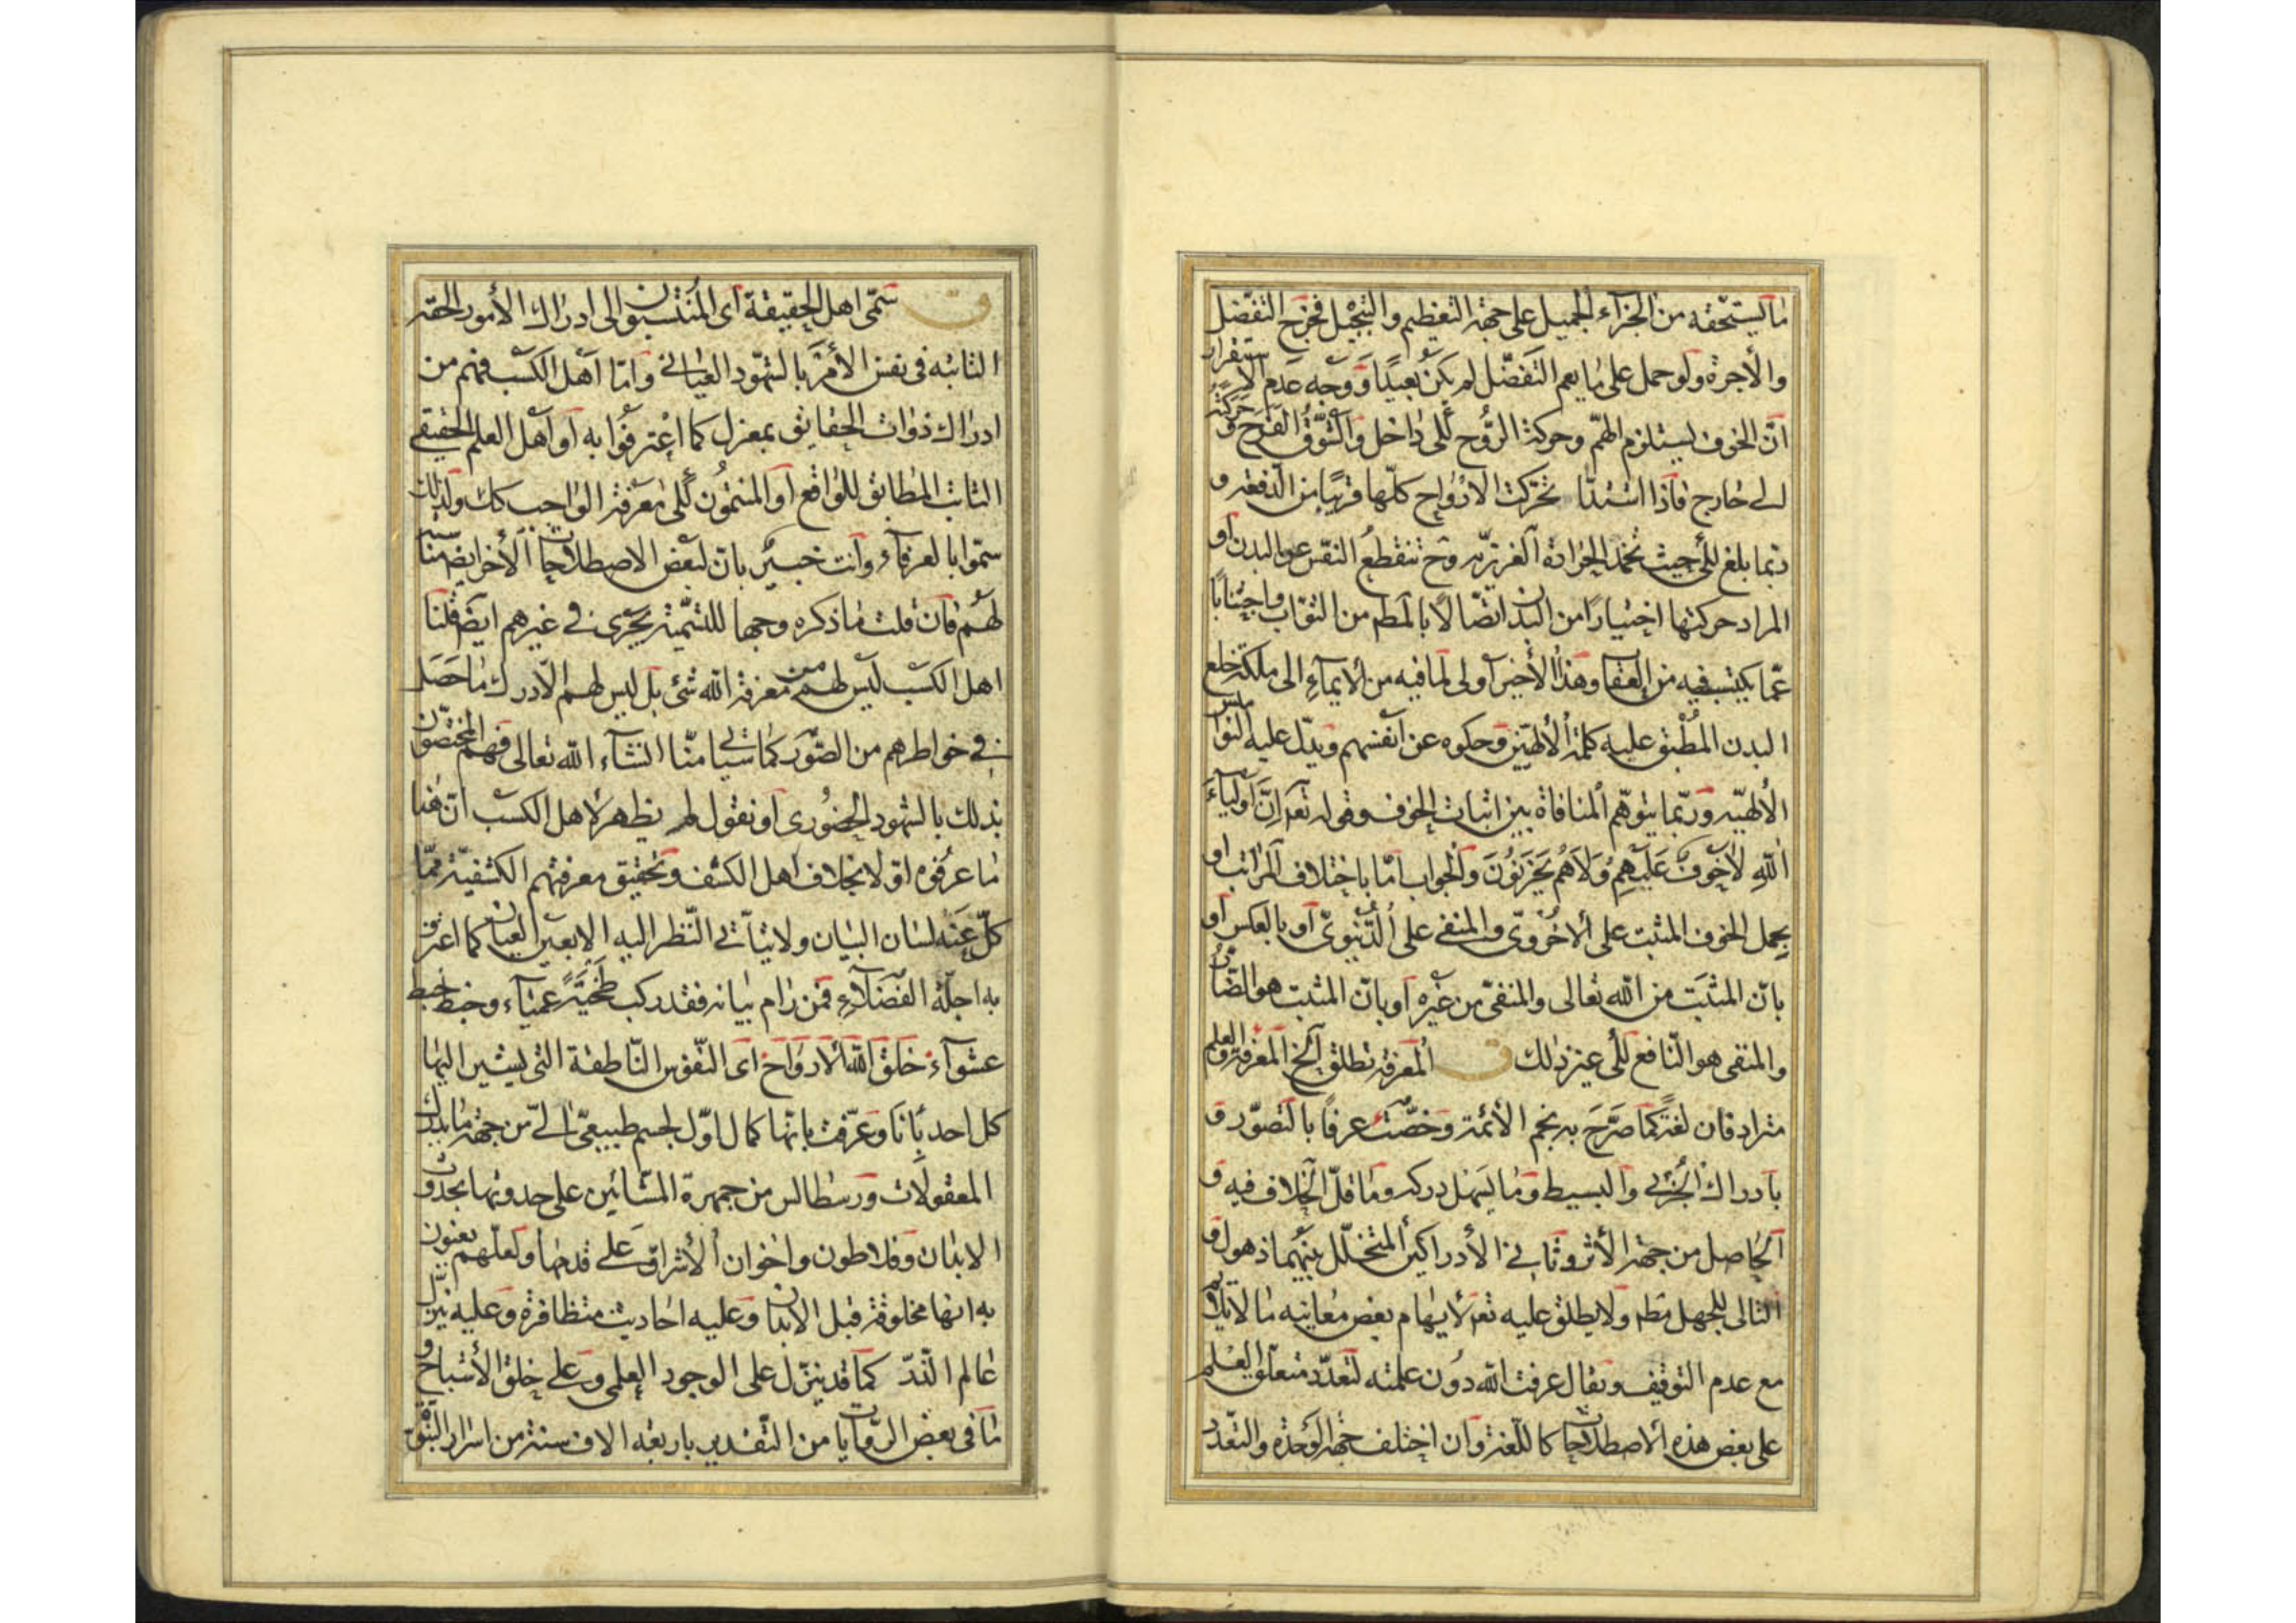 ما يستحقه من الجزآء الجميل على جهة التعظيم والتبجيل فخرج التفضل
والأجرة ولو حمل على ما يعم التفضّل لم يكن بعيدًا ووجه عدم الاستقرار
انّ الخوف يستلزم الهمّ وحركة الرُّوح إلى داخل والشّوق الفرح وحركته
الى خارج فاذا اشتدّا تحرّكت الارواح كلّها قريبًا من الدفعة و
ربما بلغ إلى حيث تخمد الحرارة الغريزيّة وح تنقطع النفس عن البدن او
المراد حركتها اختيارًا من البدن ايضًا لا بالمطم من الثوّاب واجتنابًا
عمّا يكتسب فيه من العقاب وهذا الأخير أولى لما فيه من الايمآء الى ملكة خلع
البدن المُطْبق عليه كلمة الألٰهيّين وحكوه عن انفسهم ويدلّ عليه النواميس
الألٰهيّه وربّما يتوهّم المنافاة بين اثبات الخوف وقوله تعه اِنَّ اَوْلياءَ
اللّٰهِ لا خَوْفٌ عَلَيْهِمْ وَلاَ هُمْ يَحْزَنُونَ والجواب امّا باختلاف المراتب او
بحمل الخوف المثبت على الاخرويّ والمنفى على الدُّنيويّ او بالعكس او
بانّ المثبَت من اللّٰه تعالى والمنفىّ من غيره او بانّ المثبت هو الضّار
والمنفى هو النّافع الى غير ذلك ق المعرفة تطلق الخ المعرفة والعلم
مترادفان لغةً كما صَرَّحَ به نجم الأئمة وخصّت عرفًا بالتصوّر و
بادراك الجُزئى والبسيط وما يسهل دركه وما قلّ الخلاف فيه و
الحاصل من جهة الأثر وثانى الأدراكين المتخلّل بينهما ذهول و
التالى للجهل مطم ولا يطلق عليه تعه لأيهام بعض معانيه ما لا يلائم
مع عدم التوقيف ويقال عرفت اللّٰه دون علمته لتعدّد متعلّق العلم
على بعض هذه الاصطلاحات كاللّغة وان اختلف جهة الوحدة والتعدّد
ق سمّى اهل الحقيقة اى المُنتسبون الى ادراك الأمور الحقّه
الثابتة فى نفس الأمر بالشهود العيانى وامّا اهل الكسب فهم من
ادراك ذوات الحقايق بمعزل كما اعترفوا به او اهل العلم الحقيقى
الثابت المطابق للواقع او المنتمُون إلى معرفة الواجب كك ولذلك
سمّوا بالعرفآء وانت خبير بانّ لبعض الاصطلاحات الأخر ايض مناسبة
لهم فان قلت ما ذكره وجها للتّسمية يجرى فى غيرهم ايض قلنا
اهل الكسب ليس لهم من معرفة اللّٰه شئ بل ليس لهم الّا درك ما حَصَل
فى خواطرهم من الصّور كما سيأتى منّا انشآء اللّٰه تعالى فهم المختصّون
بذلك بالشهود الحضُورى او نقول لم يظهر لاهل الكسب انّ هذا
ما عرفوه اوّلا بخلاف اهل الكشف وتحقيق معرفتهم الكشفيّة ممّا
كلّ عنه لسان البيان ولا يتأتى النّظر اليه الا بعين العيان كما اعترف
به اجلّة الفضلاء فمن رام بيانه فقد ركب عميآء وخبط خبط
عشوآء خلق اللّٰه الارواح اى النّفوس النّاطقة التى يشير اليها
كل احد بأنا وعرّفت بانّها كمال اوّل لجسم طبيعىّ الىّ من جهة ما يدرك
المعقولات ورسطالس من جمهرة المشّائين على حدوثها بحدوث
الابدان وفلاطون واخوان الأشراق على قدمها ولعلّهم يعنون
به انها مخلوقة قبل الابدان وعليه احاديث متظافرة وعليه ينزّل
عالم الذرّ كما قد ينزّل على الوجود العلمى وعلى خلق الأشباح و
ما فى بعض الرّوايات من التّقدير باربعة الاف سنة من اسرار النبوّة